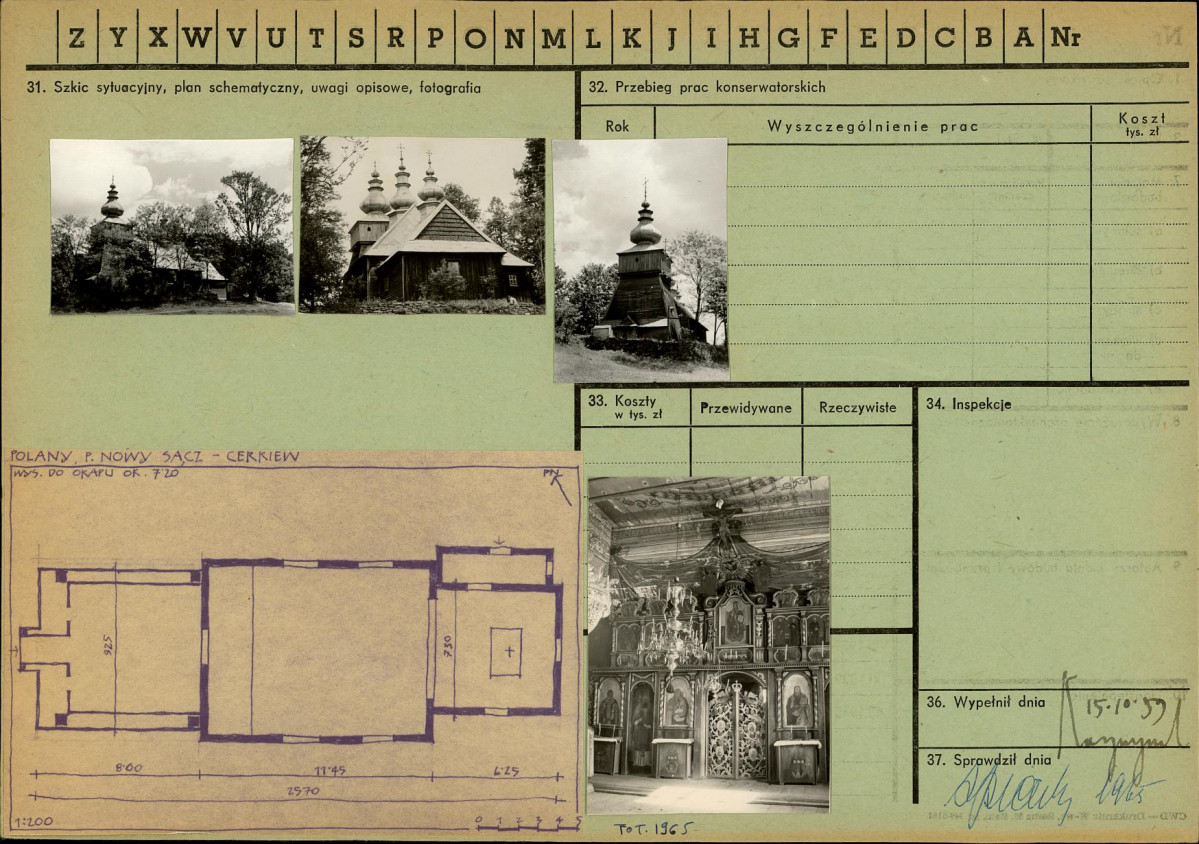 Z Y X W V U T S R P O N M L K J I H G F E D C B A Nr
31. Szkic sytuacyjny, plan schematyczny, uwagi opisowe, fotografia
32. Przebieg prac konserwatorskich
Rok
Wyszczególnienie prac
Koszt
tys. zł
33. Koszty
w tys. zł
Przewidywane
Rzeczywiste
34. Inspekcje
POLANY, P. NOWY SĄCZ - CERKIEW
WYS. DO OKAPU OK. 7'20
PN
925
730
8·00
11'45
6·25
2570
1:200
0 1 2 3 4 5
FOT. 1965
36. Wypełnił dnia
15·10·59
37. Sprawdził dnia
1965